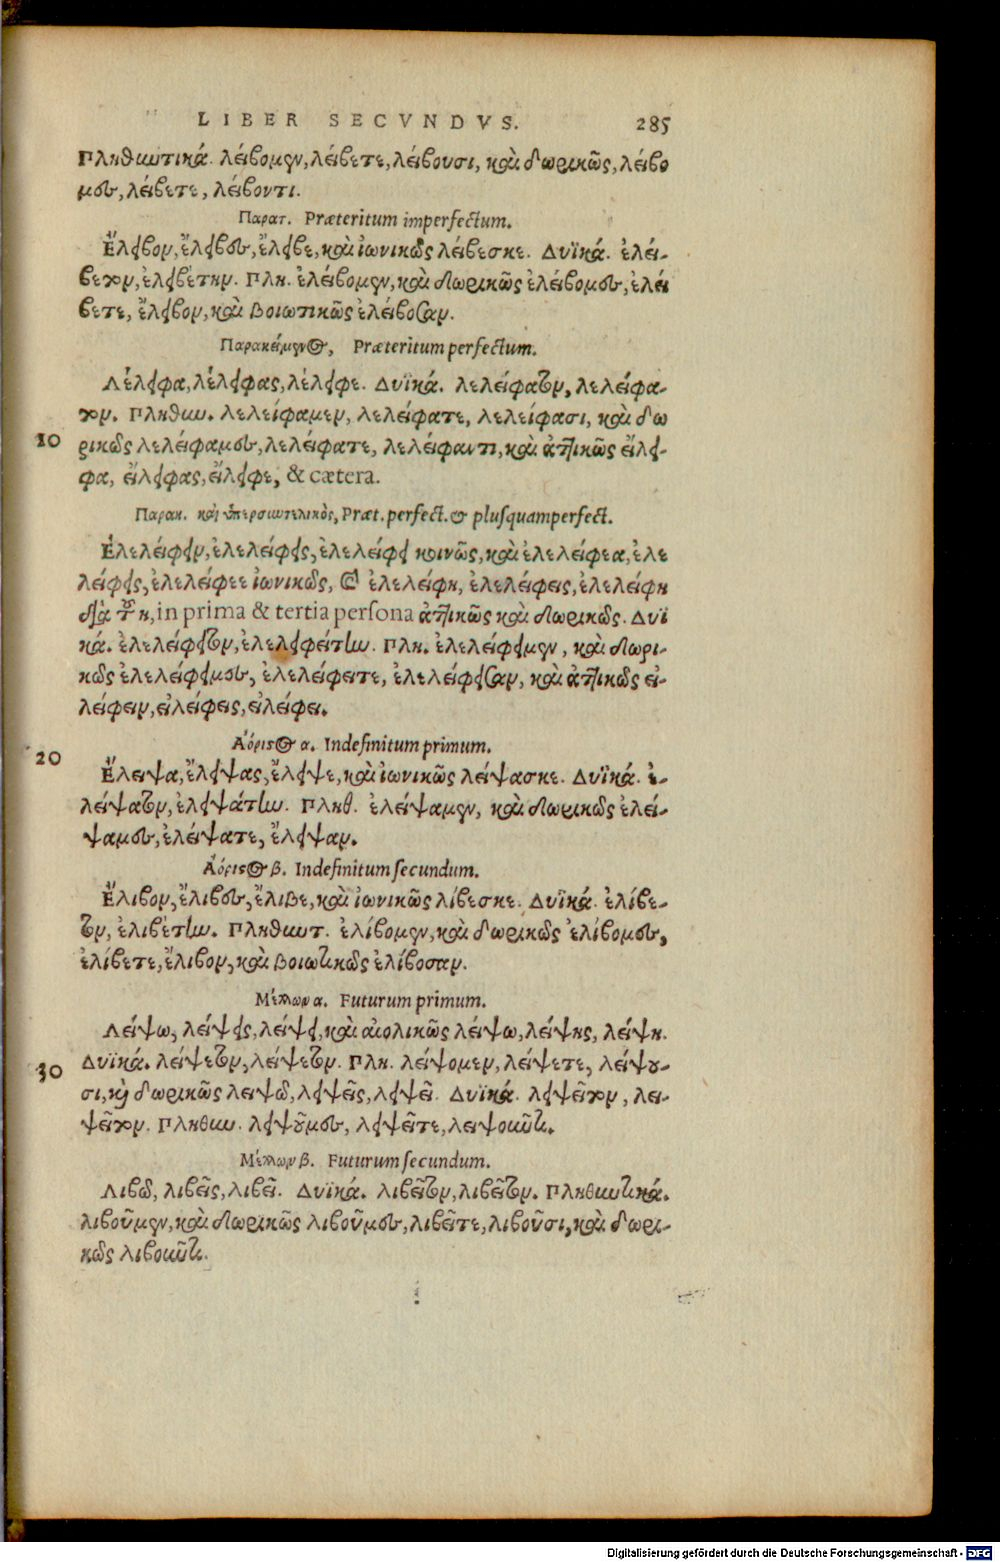 LIBER SECVNDVS. 285
Πληθιωτικά. λείβομεν, λείβετε, λείβουσι, καὶ δωρικῶς, λείβο
μες, λείβετε, λείβοντι.
Παρατ. Præteritum imperfectum.
Ἔλειβον, ἔλειβες, ἔλειβε, καὶ ἰωνικῶς λείβεσκε. Δυϊκά. ἐλεί-
βετον, ἐλειβέτην. Πλη. ἐλείβομεν, καὶ δωρικῶς ἐλείβομες, ἐλεί
βετε, ἔλειβον, καὶ βοιωτικῶς ἐλείβοσαν.
Παρακείμενος, Præteritum perfectum.
Λέλειφα, λέλειφας, λέλειφε. Δυϊκά. λελείφατον, λελείφα-
τον. Πληθιω. λελείφαμεν, λελείφατε, λελείφασι, καὶ δω
10 ρικῶς λελείφαμες, λελείφατε, λελείφαντι, καὶ ἀττικῶς εἴλει-
φα, εἴλειφας, εἴλειφε, & cætera.
Παρακ. καὶ ὑπερσωτελικὸς, Præt. perfect. & plusquamperfect.
Ἐλελείφειν, ἐλελείφεις, ἐλελείφει κοινῶς, καὶ ἐλελείφεα, ἐλε
λείφεις, ἐλελείφεε ἰωνικῶς, & ἐλελείφη, ἐλελείφεις, ἐλελείφη
διὰ τοῦ η, in prima & tertia persona ἀττικῶς καὶ δωρικῶς. Δυϊ
κά. ἐλελείφειτον, ἐλελειφείτην. Πλη. ἐλελείφειμεν, καὶ δωρι-
κῶς ἐλελείφειμες, ἐλελείφειτε, ἐλελείφεισαν, καὶ ἀττικῶς εἰ-
λείφειν, εἰλείφεις, εἰλείφει.
Ἀόριστος α. Indefinitum primum.
20 Ἔλειψα, ἔλειψας, ἔλειψε, καὶ ἰωνικῶς λείψασκε. Δυϊκά. ἐ-
λείψατον, ἐλειψάτην. Πληθ. ἐλείψαμεν, καὶ δωρικῶς ἐλεί-
ψαμες, ἐλείψατε, ἔλειψαν.
Ἀόριστος β. Indefinitum secundum.
Ἔλιβον, ἔλιβες, ἔλιβε, καὶ ἰωνικῶς λίβεσκε. Δυϊκά. ἐλίβε-
τον, ἐλιβέτην. Πληθιωτ. ἐλίβομεν, καὶ δωρικῶς ἐλίβομες,
ἐλίβετε, ἔλιβον, καὶ βοιωτικῶς ἐλίβοσαν.
Μέλλων α. Futurum primum.
Λείψω, λείψεις, λείψει, καὶ αἰολικῶς λείψω, λείψης, λείψη.
30 Δυϊκά. λείψετον, λείψετον. Πλη. λείψομεν, λείψετε, λείψου-
σι, καὶ δωρικῶς λειψῶ, λειψεῖς, λειψεῖ. Δυϊκά. λειψεῖτον, λει-
ψεῖτον. Πληθιω. λειψοῦμες, λειψεῖτε, λειψοιῶτι.
Μέλλων β. Futurum secundum.
Λιβῶ, λιβεῖς, λιβεῖ. Δυϊκά. λιβεῖτον, λιβεῖτον. Πληθιωτικά.
λιβοῦμεν, καὶ δωρικῶς λιβοῦμες, λιβεῖτε, λιβοῦσι, καὶ δωρι-
κῶς λιβοιῶτι.
Digitalisierung gefördert durch die Deutsche Forschungsgemeinschaft - DFG